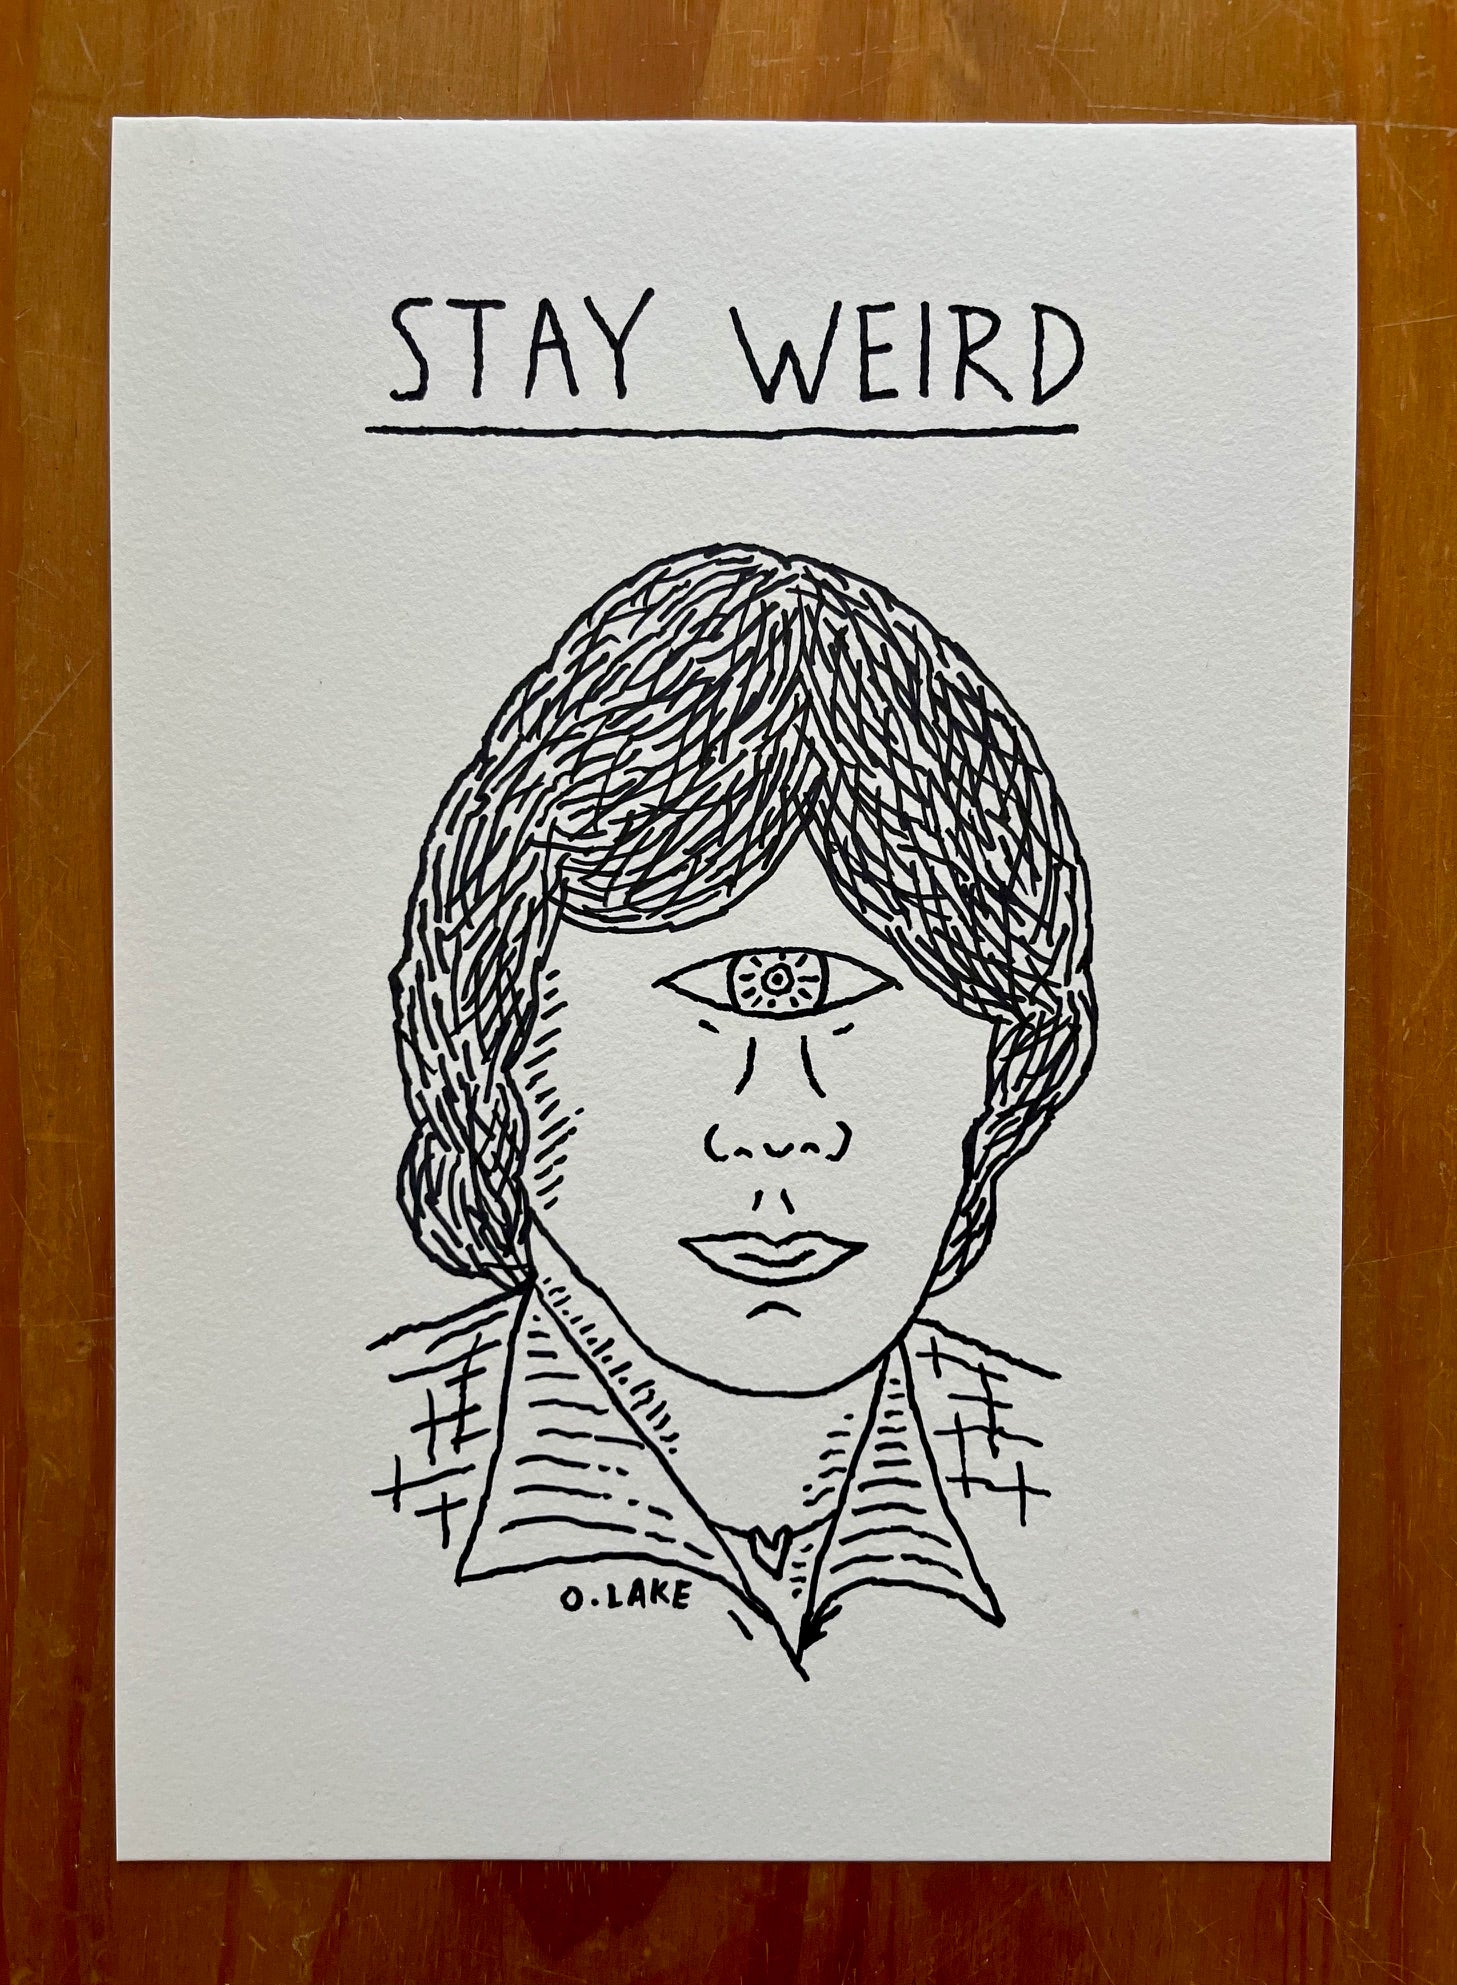 STAY WEIRD
O.LAKE